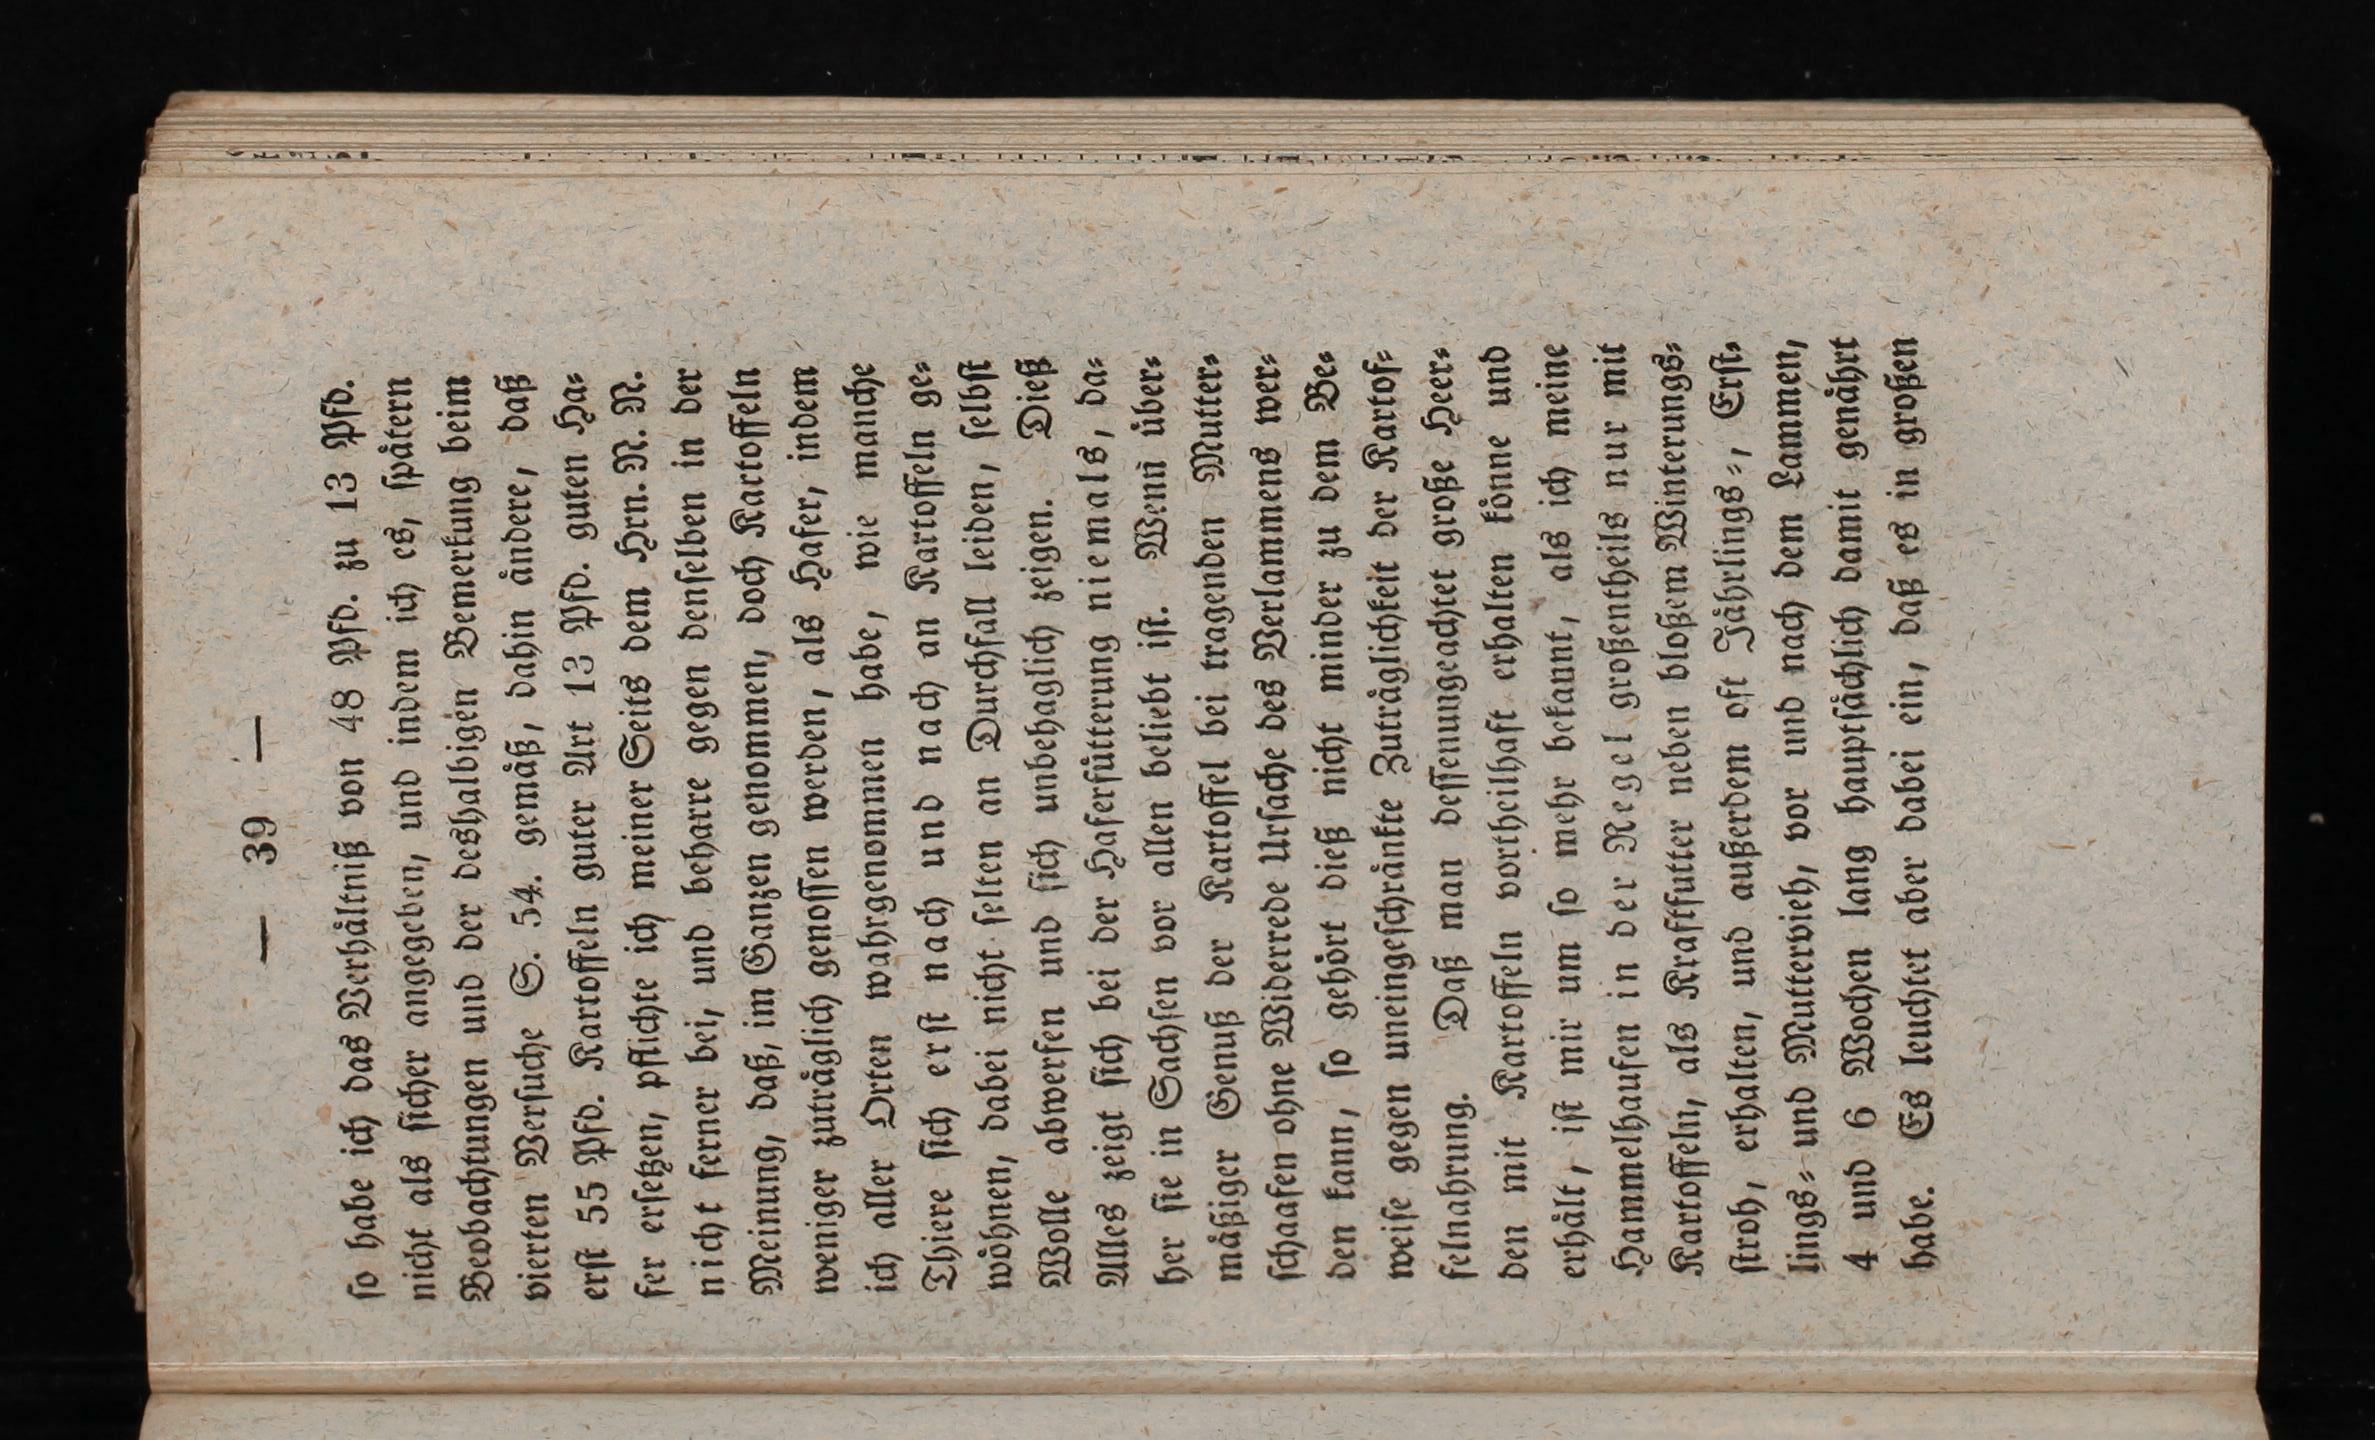 — 39 —
so habe ich das Verhältniß von 48 Pfd. zu 13 Pfd.
nicht als sicher angegeben, und indem ich es, spätern
Beobachtungen und der deshalbigen Bemerkung beim
vierten Versuche S. 54. gemäß, dahin ändere, daß
erst 55 Pfd. Kartoffeln guter Art 13 Pfd. guten Ha-
fer ersetzen, pflichte ich meiner Seits dem Hrn. N. N.
nicht ferner bei, und beharre gegen denselben in der
Meinung, daß, im Ganzen genommen, doch Kartoffeln
weniger zuträglich genossen werden, als Hafer, indem
ich aller Orten wahrgenommen habe, wie manche
Thiere sich erst nach und nach an Kartoffeln ge-
wöhnen, dabei nicht selten an Durchfall leiden, selbst
Wolle abwerfen und sich unbehaglich zeigen. Dieß
Alles zeigt sich bei der Haferfütterung niemals, da-
her sie in Sachsen vor allen beliebt ist. Wenn über-
mäßiger Genuß der Kartoffel bei tragenden Mutter-
schaafen ohne Widerrede Ursache des Verlammens wer-
den kann, so gehört dieß nicht minder zu dem Be-
weise gegen uneingeschränkte Zuträglichkeit der Kartof-
felnahrung. Daß man dessenungeachtet große Heer-
den mit Kartoffeln vortheilhaft erhalten könne und
erhält, ist mir um so mehr bekannt, als ich meine
Hammelhaufen in der Regel großentheils nur mit
Kartoffeln, als Kraftfutter neben bloßem Winterungs-
stroh, erhalten, und außerdem oft Jährlings-, Erst-
lings- und Muttervieh, vor und nach dem Lammen,
4 und 6 Wochen lang hauptsächlich damit genährt
habe. Es leuchtet aber dabei ein, daß es in großen